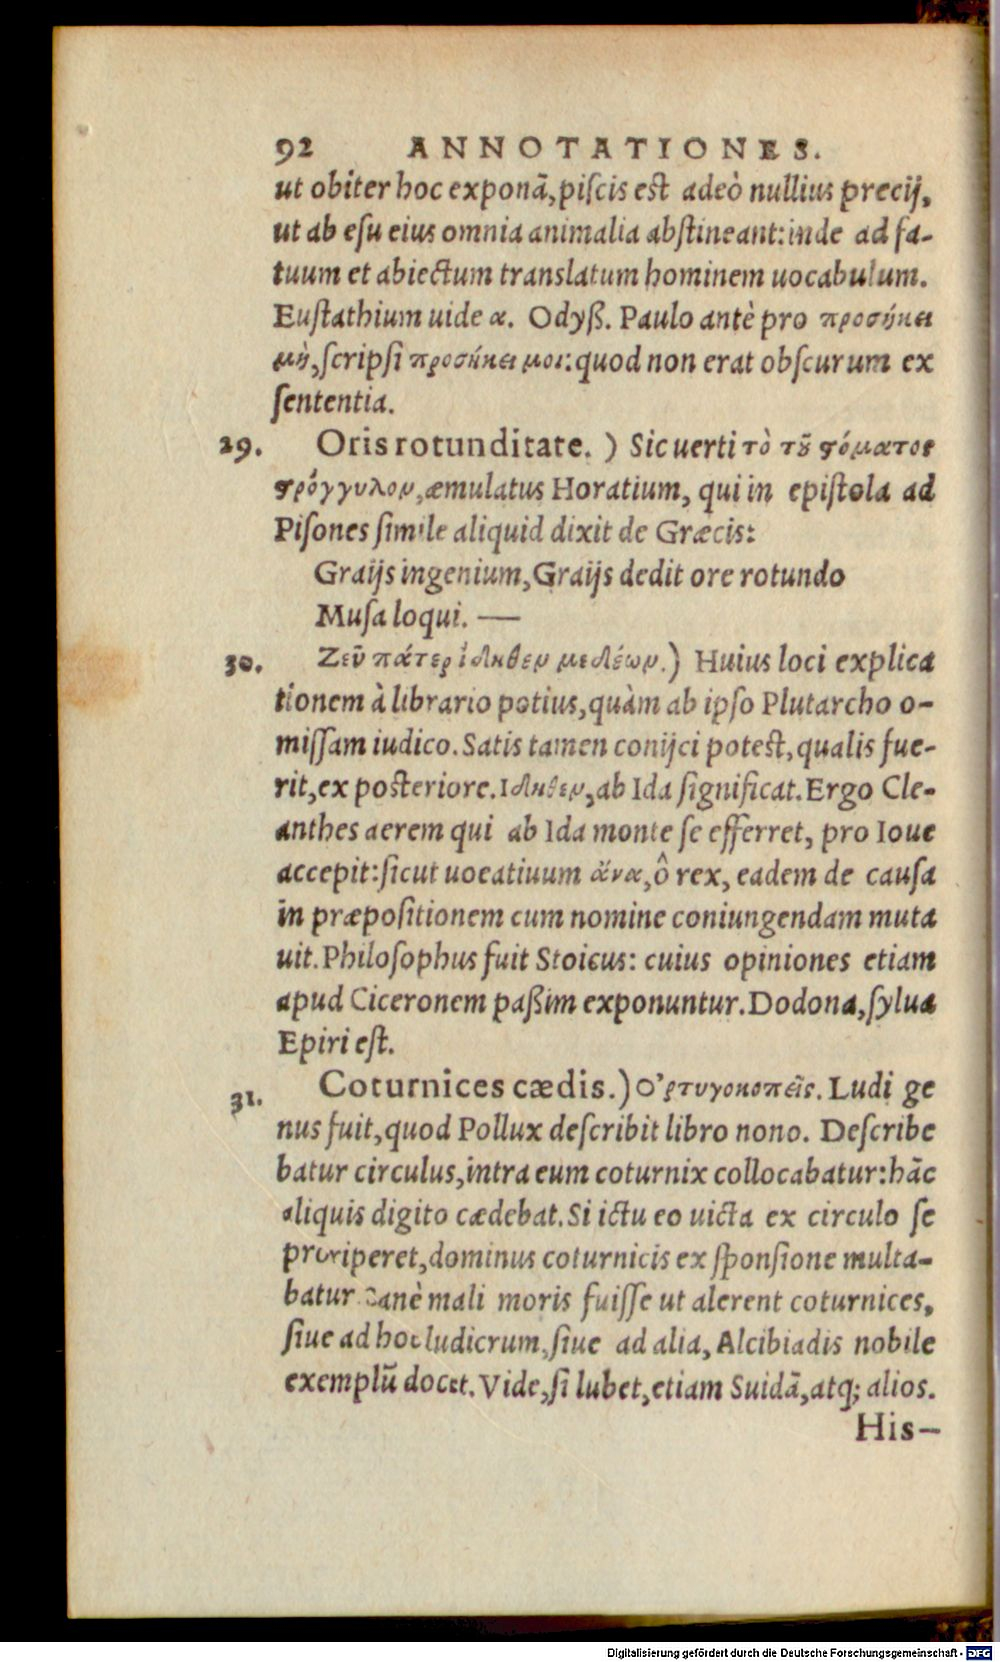 92 ANNOTATIONES.
ut obiter hoc exponā, piſcis est adeò nullius precij,
ut ab eſu eius omnia animalia abſtineant: inde ad fa-
tuum et abiectum translatum hominem uocabulum.
Euſtathium uide α. Odyß. Paulo antè pro προσήκει
μὴ, ſcripſi προσήκει μοι: quod non erat obſcurum ex
ſententia.
29. Oris rotunditate. ) Sic uerti τὸ τȣ͂ ϛόματος
ϛρόγγυλον, æmulatus Horatium, qui in epiſtola ad
Piſones ſimile aliquid dixit de Græcis:
Graijs ingenium, Graijs dedit ore rotundo
Muſa loqui. —
30. Ζεῦ πάτερ ἰδηθεν μεδέων.) Huius loci explica
tionem à librario potius, quàm ab ipſo Plutarcho o-
miſſam iudico. Satis tamen conijci potest, qualis fue-
rit, ex posteriore. Ιδηθεν, ab Ida ſignificat. Ergo Cle-
anthes aerem qui ab Ida monte ſe efferret, pro Ioue
accepit: ſicut uocatiuum ἄνα, ô rex, eadem de cauſa
in præpoſitionem cum nomine coniungendam muta
uit. Philoſophus fuit Stoicus: cuius opiniones etiam
apud Ciceronem paßim exponuntur. Dodona, ſylua
Epiri eſt.
31. Coturnices cædis.) Ο᾽ρτυγοκοπεῖς. Ludi ge
nus fuit, quod Pollux deſcribit libro nono. Deſcribe
batur circulus, intra eum coturnix collocabatur: hāc
aliquis digito cædebat. Si ictu eo uicta ex circulo ſe
proriperet, dominus coturnicis ex ſponſione multa-
batur. Sanè mali moris fuiſſe ut alerent coturnices,
ſiue ad hoc ludicrum, ſiue ad alia, Alcibiadis nobile
exemplū docet. Vide, ſi lubet, etiam Suidā, atq; alios.
His-
Digitalisierung gefördert durch die Deutsche Forschungsgemeinschaft - DFG